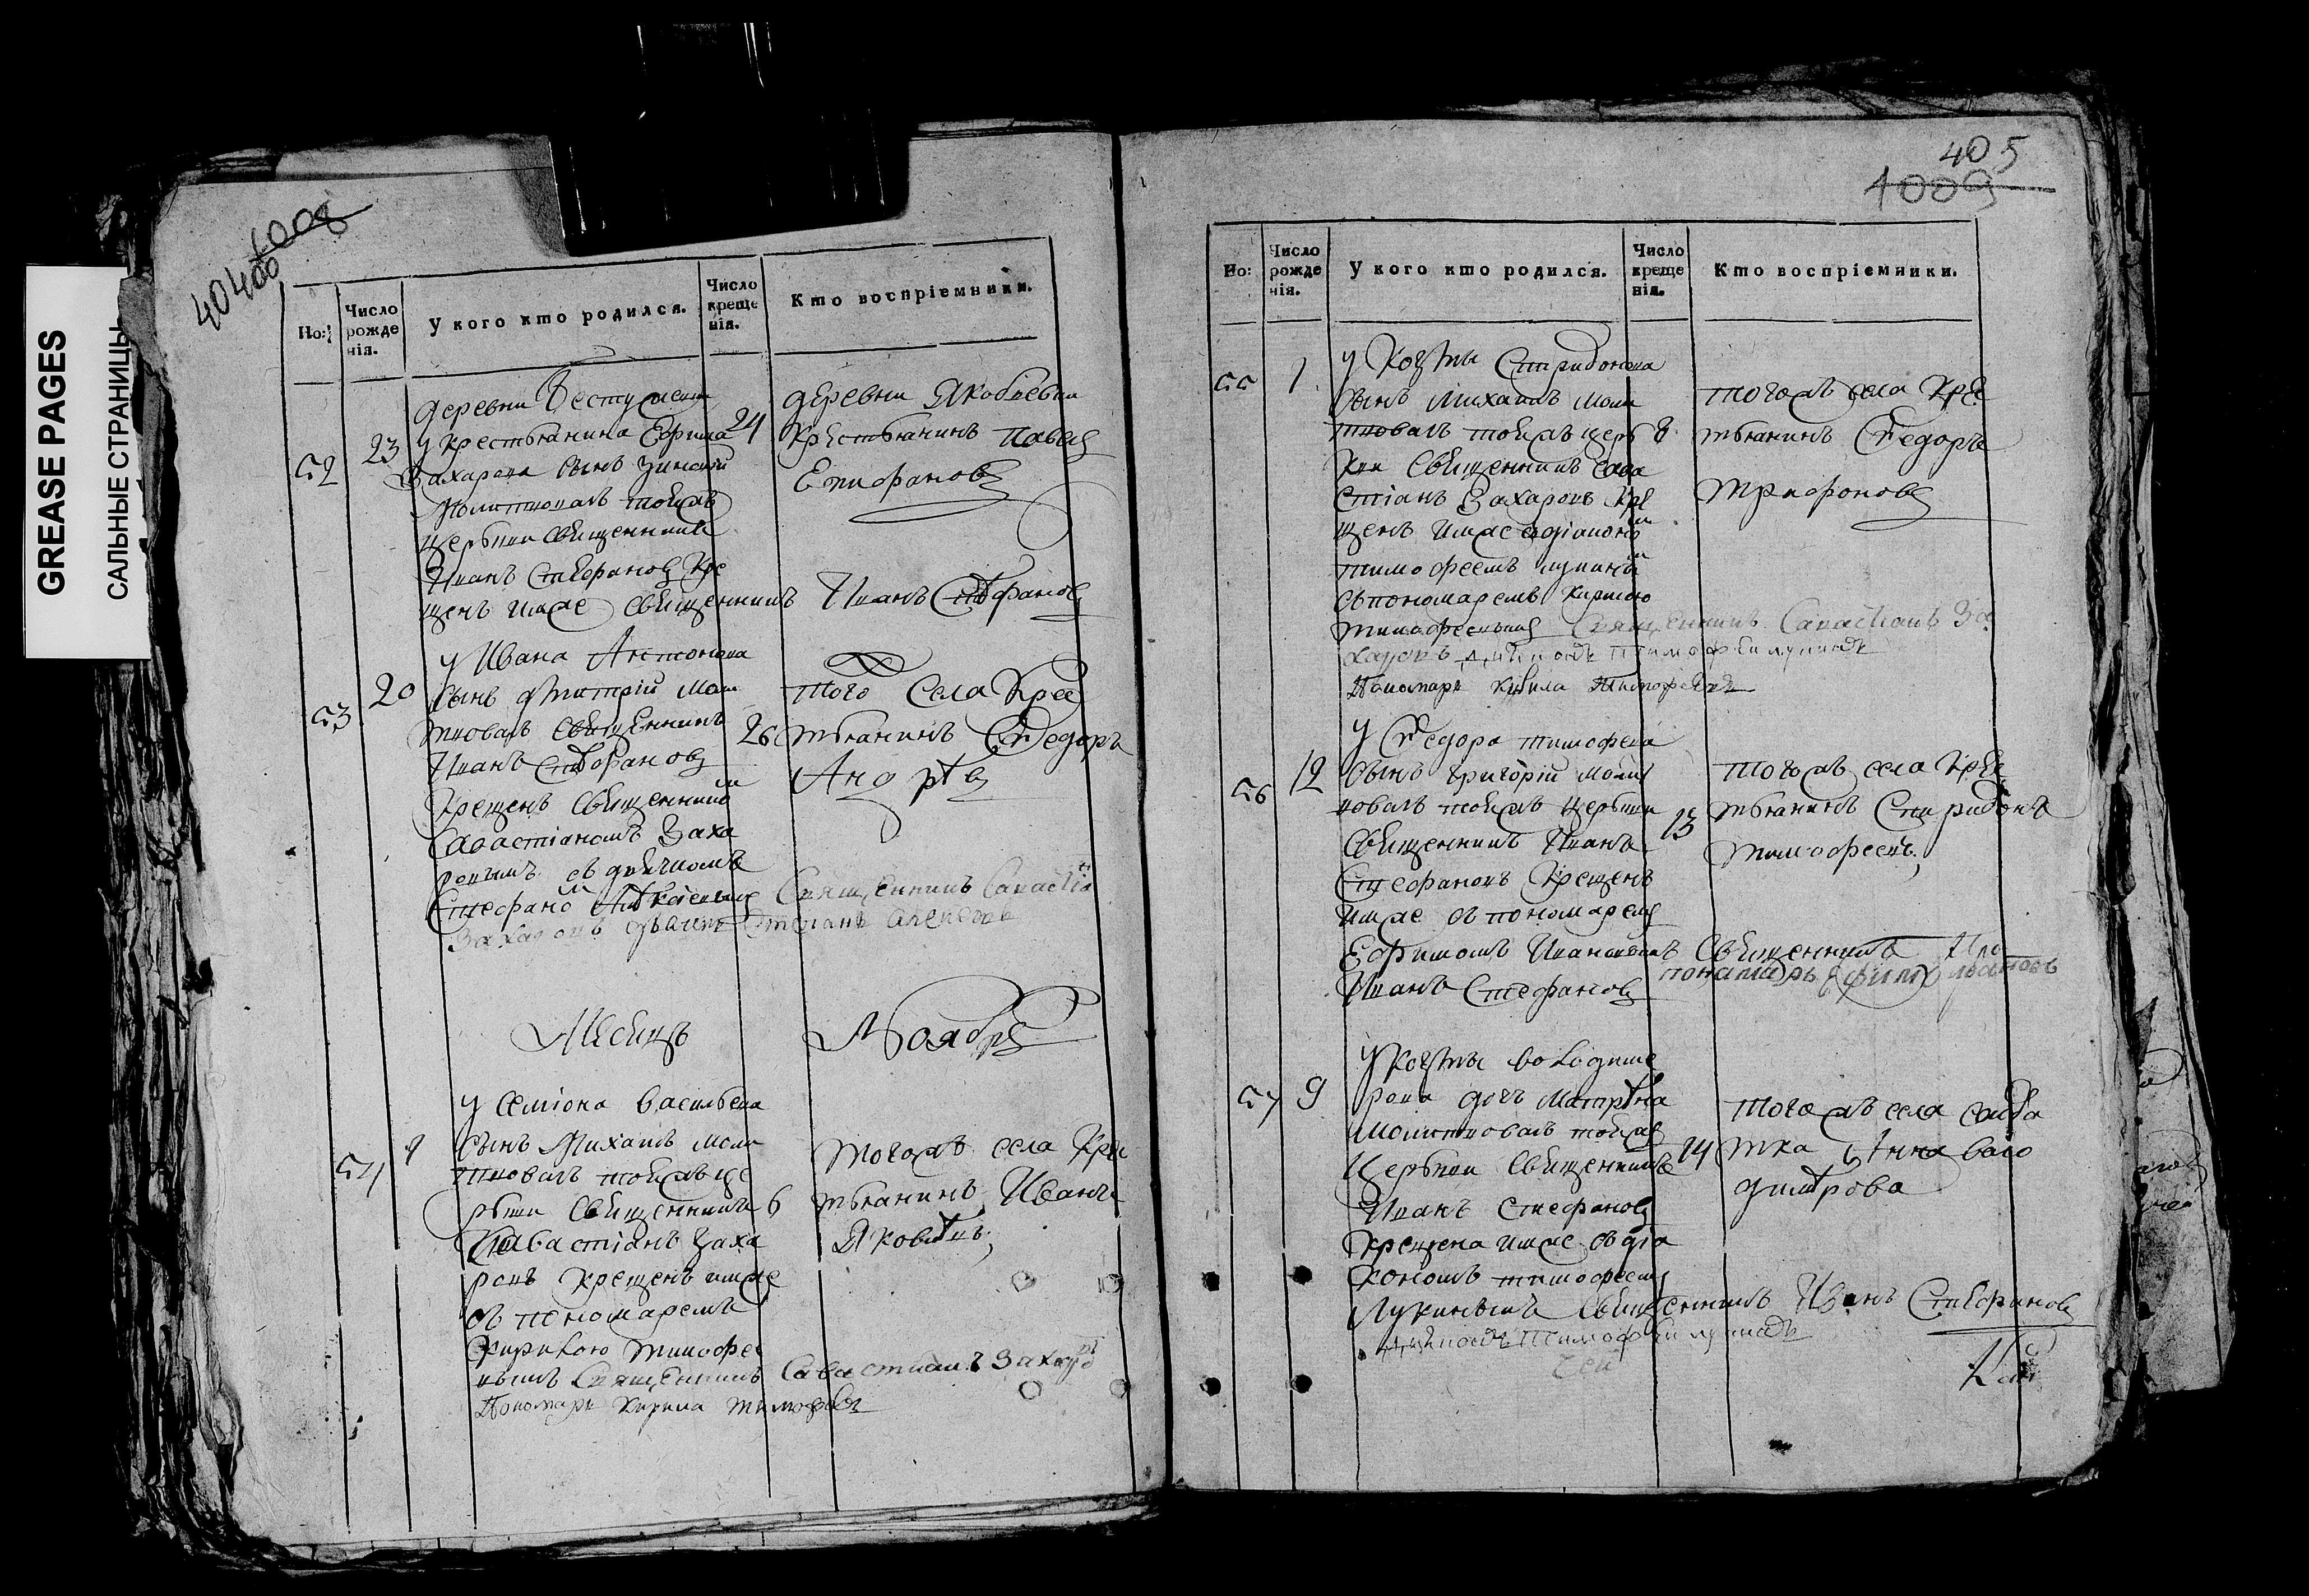 GREASE PAGES
САЛЬНЫЕ СТРАНИЦЫ
404
1008
Но:
Число рожде нія.
У кого кто родился.
Число креще нія.
Кто воспріемники.
деревни
52
23
у крестьянина Ефима
24
Захарова сынъ
молитвовалъ тойжъ
церкви священникъ
Иванъ Стефановъ кре
щенъ имже священникъ Иванъ Стефановъ
деревни Яковлевки
крестьянинъ Павелъ
Епифановъ
53
20
у Ивана Антонова
сынъ Дмитрій моли
твовалъ священникъ
Иванъ Стефановъ
крещенъ священнико
Савастіаномъ Заха
ровымъ съ дьячкомъ
Стефано Алексеевымъ Священникъ Савастіа
Захаровъ дьячекъ Степанъ Алексеевъ
26
того села крес
тьянинъ Федоръ
Андреев
Месяцъ Ноябрь
54
у Семіона Васильева
сынъ Михаилъ моли
твовалъ тойжъ це
ркви священникъ
6
Савастіанъ Заха
ровъ крещенъ имже
съ пономаремъ
Кирилою Тимофее
вымъ Священникъ Савастианъ Захаро
Пономарь Кирила Тимофеевъ
тогожъ села крес
тьянинъ Иванъ
Яковлевъ
405
1009
Но:
Число рожде нія.
У кого кто родился.
Число креще нія.
Кто воспріемники.
55
1
у Козмы Спиридонова
сынъ Михаилъ моли
твовалъ тойжъ церк
8
ви священникъ Сава
стіанъ Захаровъ кре
щенъ имже съ діакономъ
Тимофеемъ Лукины
съ пономаремъ Кирилою
Тимофеевымъ Священникъ Савастіанъ За
харовъ діяконъ Тимофей Лукинъ
Пономарь Кирила Тимофеевъ
тогожъ села крес
тьянинъ Федоръ
Трифоновъ
56
12
у Федора Тимофеева
сынъ Григорій молит
вовалъ тойжъ церкви
священникъ Иванъ
13
Стефановъ крещенъ
имже съ пономаремъ
Ефимомъ Ивановымъ Священникъ
Иванъ Стефановъ пономарь Ефимъ Ивановъ
тогожъ села крес
тьянинъ Спиридонъ
Тимофеевъ
57
9
у Козмы Володиме
рова дочь Матрена
молитвовалъ тойже
церкви священникъ
14
Иванъ Стефановъ
крещена имже съ діа
кономъ Тимофеемъ
Лукинымъ священникъ Иванъ Стефановъ
діяконъ Тимофей Лукинъ
тогожъ села солда
тка Анна
Дмитрова